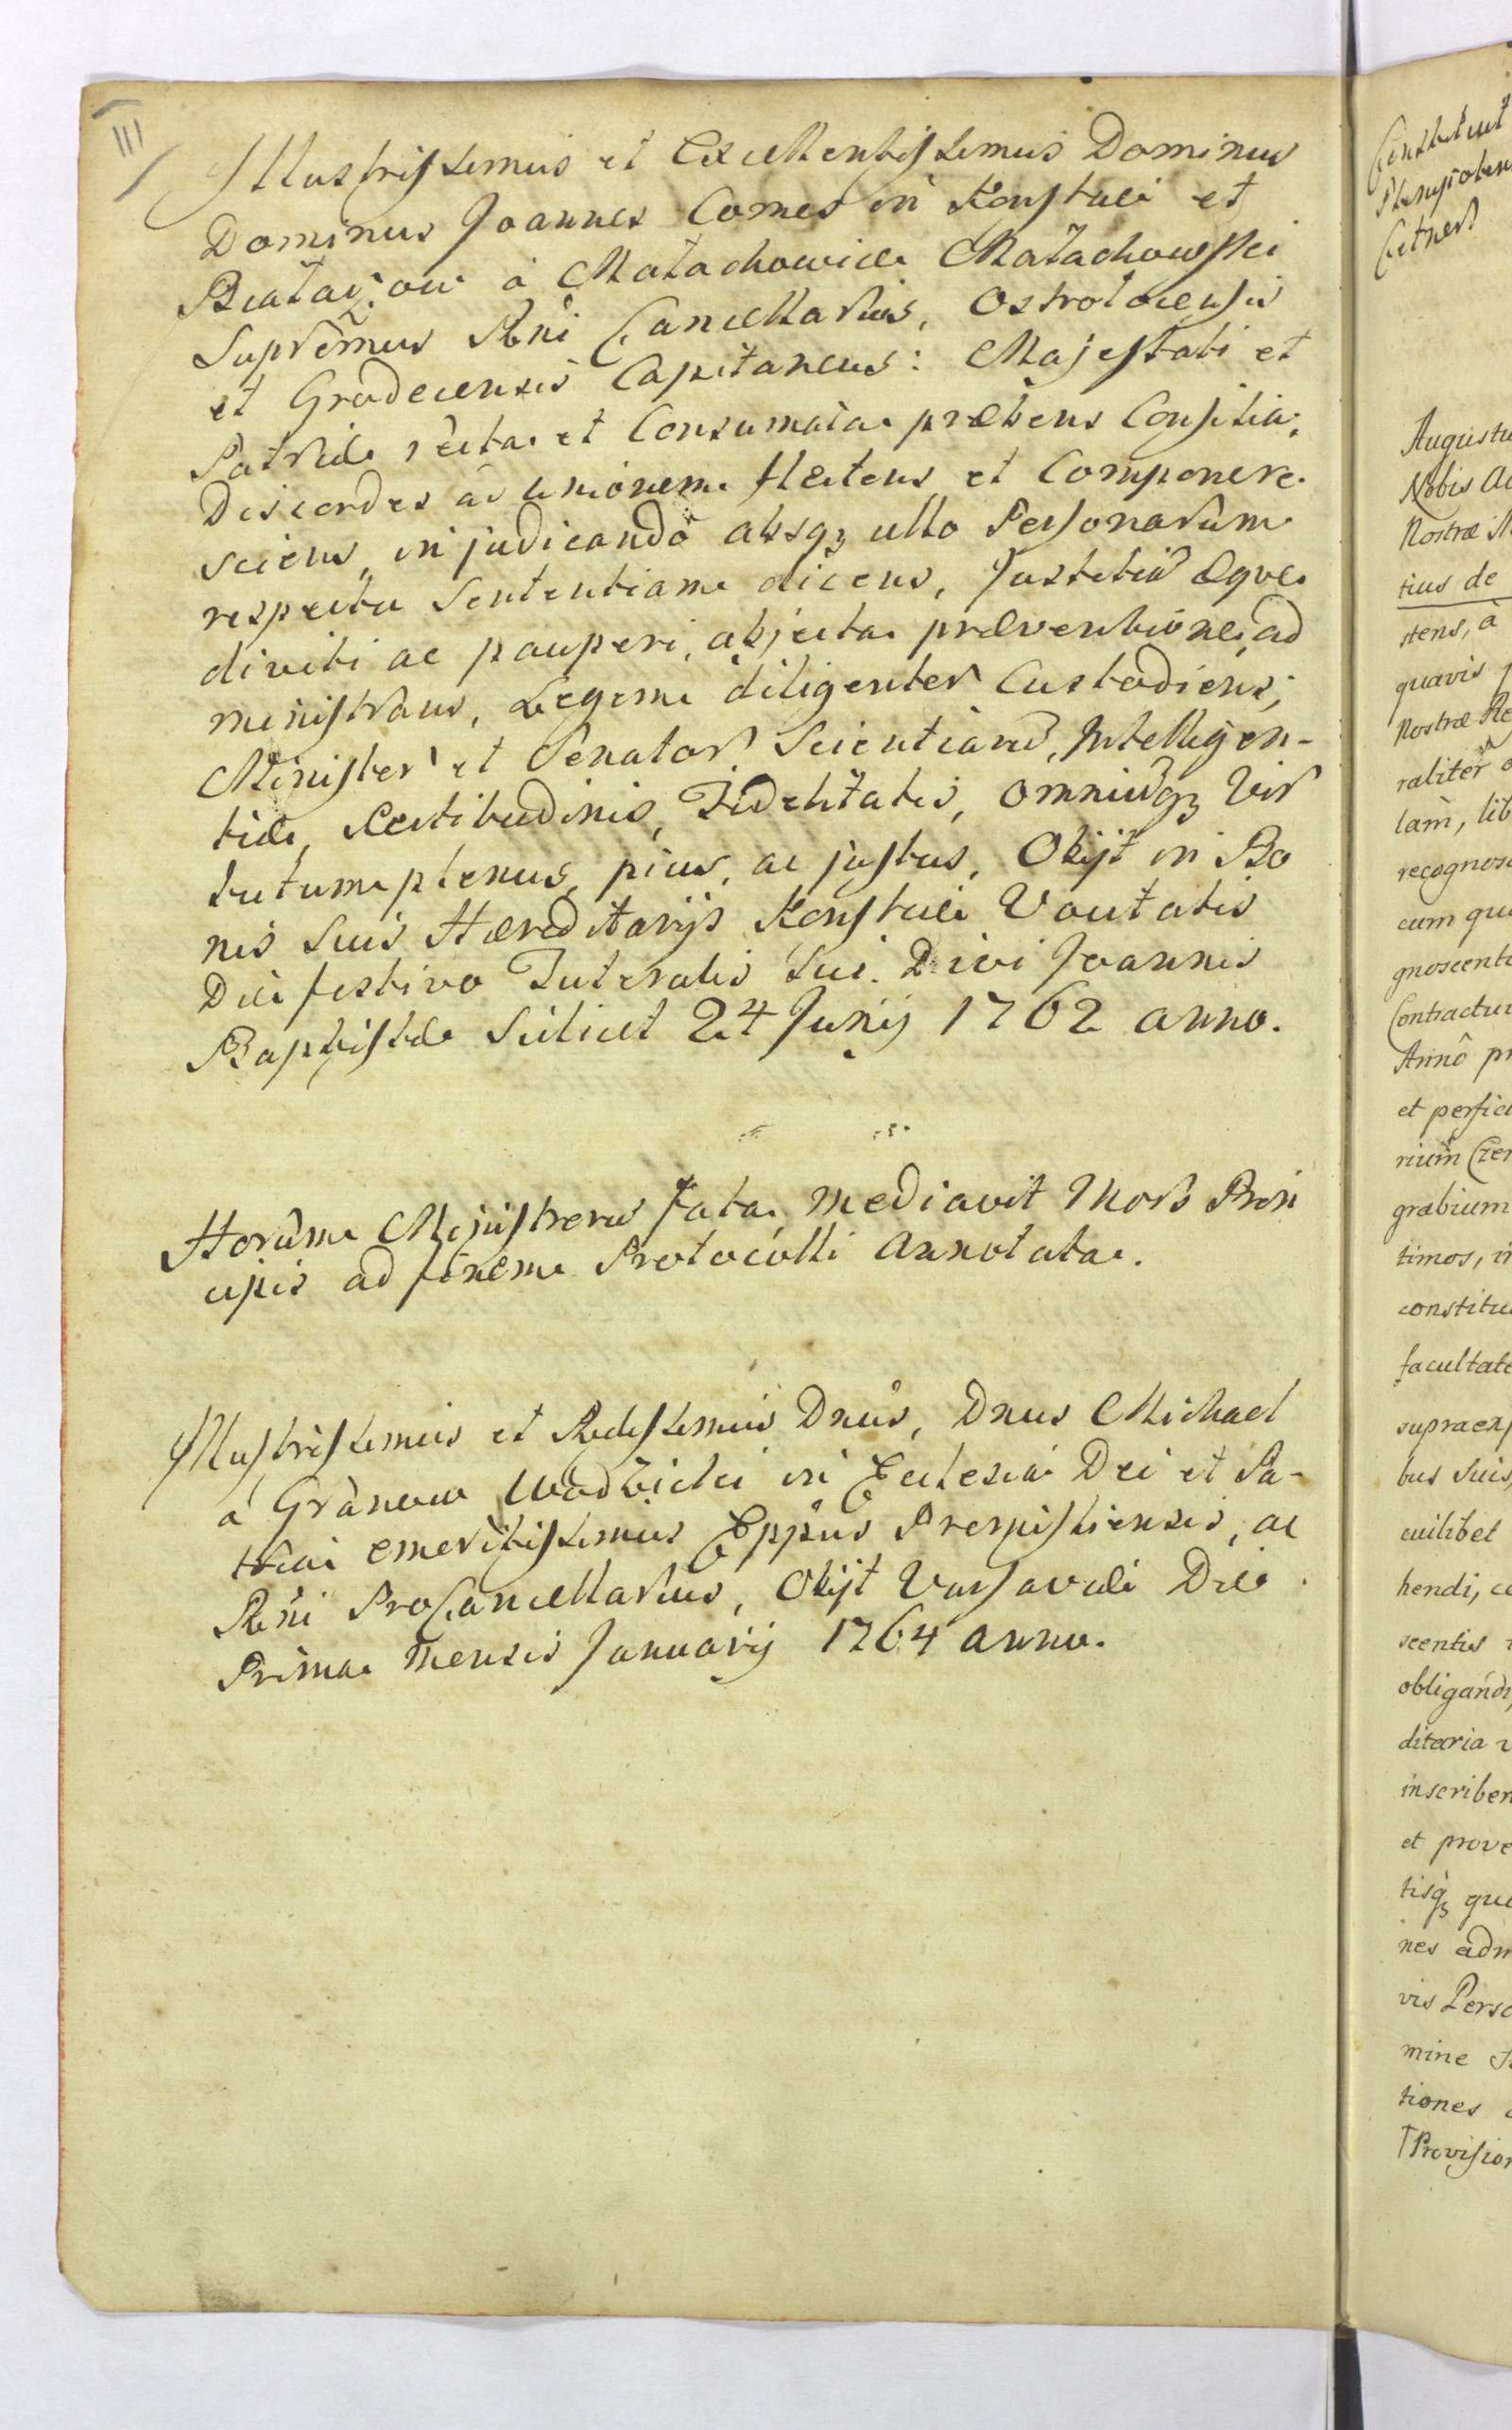 III
Illustrissimus et Excellentissimus Dominus
Dominus Joannes Comes in Konskie et
Białaczow à Małachowice Małachowski
Supremus Rni Cancellarius, Ostrołecensis
et Grodecensis Capitaneus: Majestati et
Patriæ recta et Consumata præbens Consilia,
Discordes ad unionem flectens et Componere
sciens, in judicando absq3 ullo Personarum
respectu Sententiam dicens, Justitiã æque
diviti ac pauperi, abjecta præventione, ad
ministrans, Legem diligenter Custodiens;
Minister et Senator Scientiarũ, Intelligen-
tiæ, Rectitudinis, Fidelitatis, omniũq3 Vir
tutum plenus, pius, ac justus, Obijt in Bo
nis Suis Hæreditarijs Konskie Vocitatis
Die festivo Tutelaris Sui Divi Joannis
Baptistæ Scilicet 24 Junij 1762 anno.
Horum Ministrorũ fata mediavit Mors Prin
cipis ad finem Protocolli Annotata.
Illustrissimus et Rdissimus Dnus, Dnus Michael
à Granow Wodzicki in Ecclesia Dei et Pa-
tria emeritissimus Eppus Premisliensis, ac
Rni ProCancellarius, Obijt Varsaviæ Die
Prima Mensis Januarij 1764 anno.
Augustu
Nobis
Nostræ
tius de
stens, à
quavis
Nostræ Re
raliter
lam, lib
recognos
cum qui
gnoscent
Contractu
Anno pr
et perfic
rium
grabium
timos, i
constitu
facultate
supraex
bus Suis,
cuilibet
hendi, ce
scentis
obligandi,
ditaria
inscriben
et prove
tisq3 qui
nes adm
vis Perso
mine
tiones
Provision